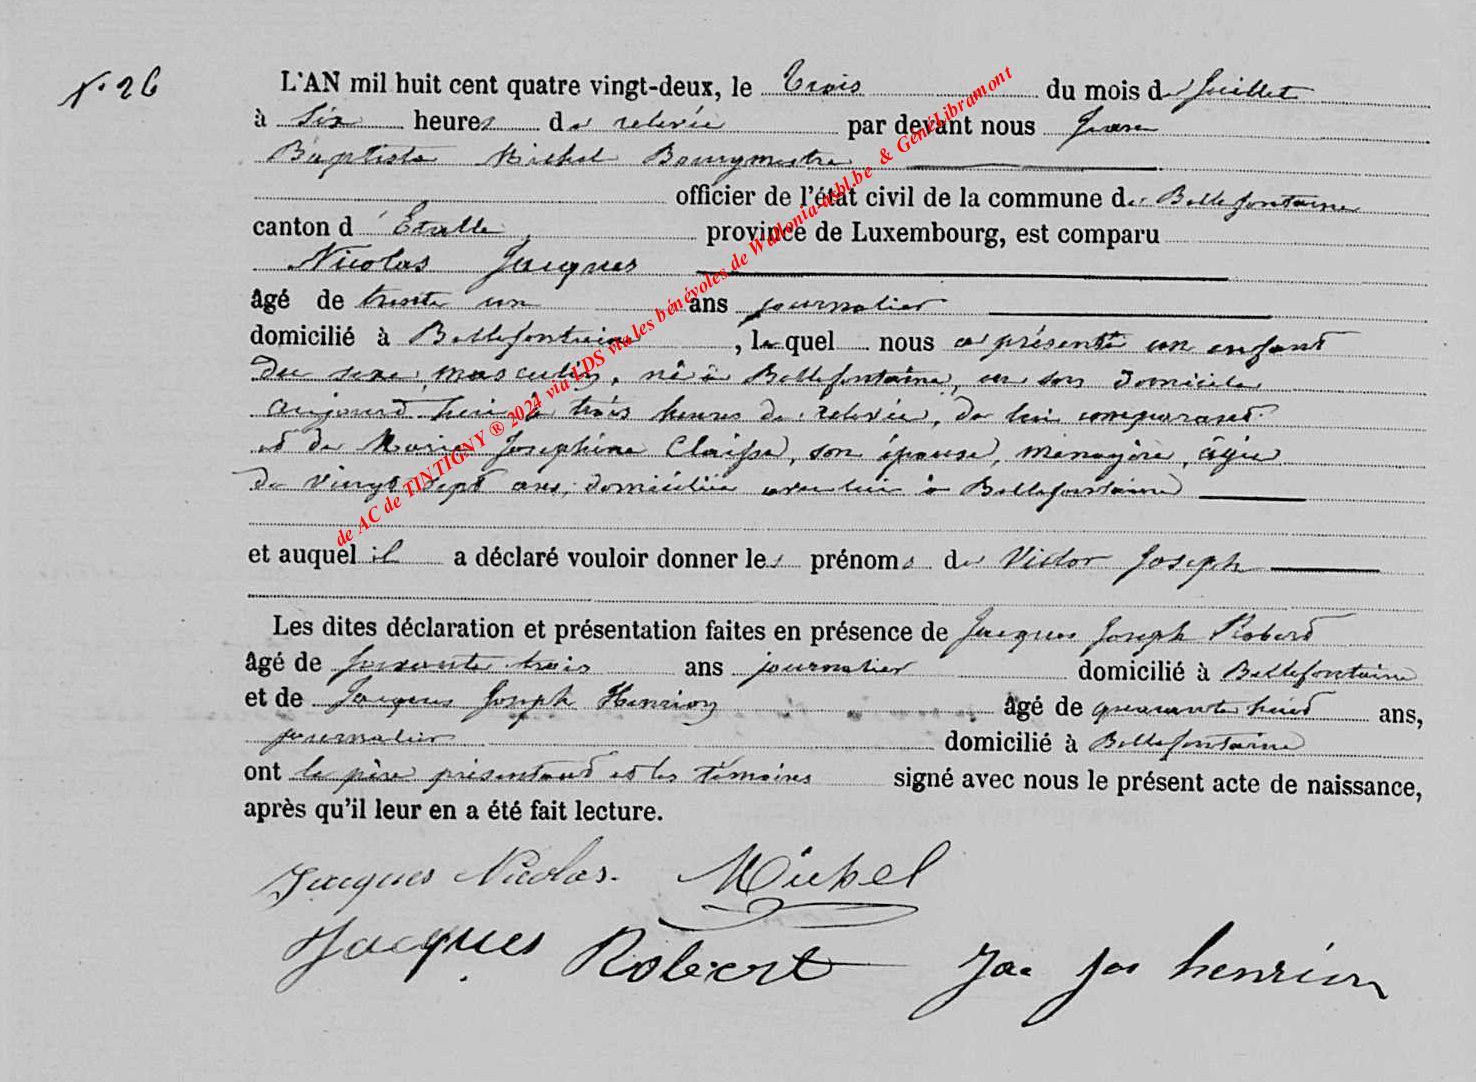 N° 26
L'AN mil huit cent quatre vingt-deux, le Trois du mois de Juillet
à six heures de relevée par devant nous Jean
Baptiste Michel Bourgmestre
officier de l'état civil de la commune de Bellefontaine
canton d'Etalle, province de Luxembourg, est comparu
Nicolas Jacques
âgé de trente un ans journalier
domicilié à Bellefontaine, lequel nous a présenté un enfant
du sexe masculin, né à Bellefontaine, en son domicile
aujourd'hui à trois heures de relevée, de lui comparant
et de Marie Josephine Claisse, son épouse, ménagère, âgée
de vingt sept ans, domiciliée avec lui à Bellefontaine
et auquel il a déclaré vouloir donner les prénoms de Victor Joseph
Les dites déclaration et présentation faites en présence de Jacques Joseph Robert
âgé de soixante trois ans journalier domicilié à Bellefontaine
et de Jacques Joseph Henrion âgé de quarante huit ans,
journalier domicilié à Bellefontaine
ont le père présentant et les témoins signé avec nous le présent acte de naissance,
après qu'il leur en a été fait lecture.
Jacques Nicolas. Michel
Jacques Robert Jac Jos henrion
de AC de TINTIGNY ® 2024 via LDS via les bénévoles de Wallonia-asbl.be & GénéLibramont